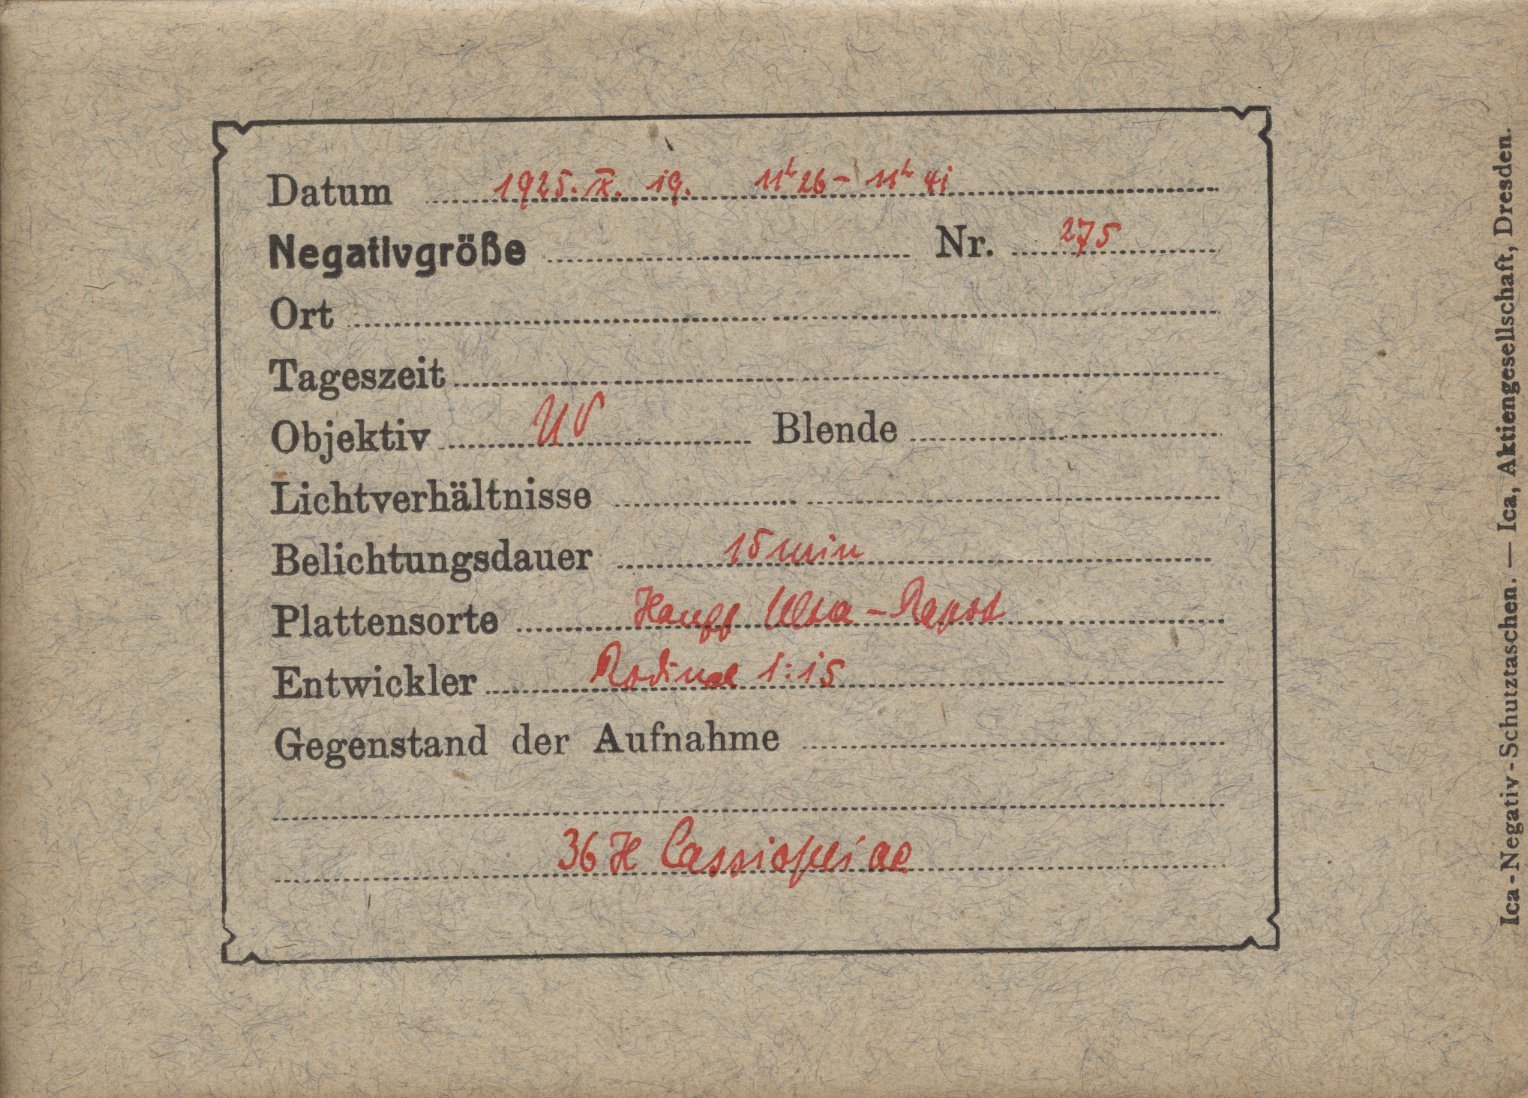 Datum 1925. X. 19. 11h 26 - 11h 41
Negativgröße Nr. 275
Ort
Tageszeit
Objektiv UV Blende
Lichtverhältnisse
Belichtungsdauer 15 min
Plattensorte Hauff Ultra-Rapid
Entwickler Rodinal 1:15
Gegenstand der Aufnahme
36 H Cassiopeiae
Ica-Negativ-Schutztaschen. — Ica, Aktiengesellschaft, Dresden.